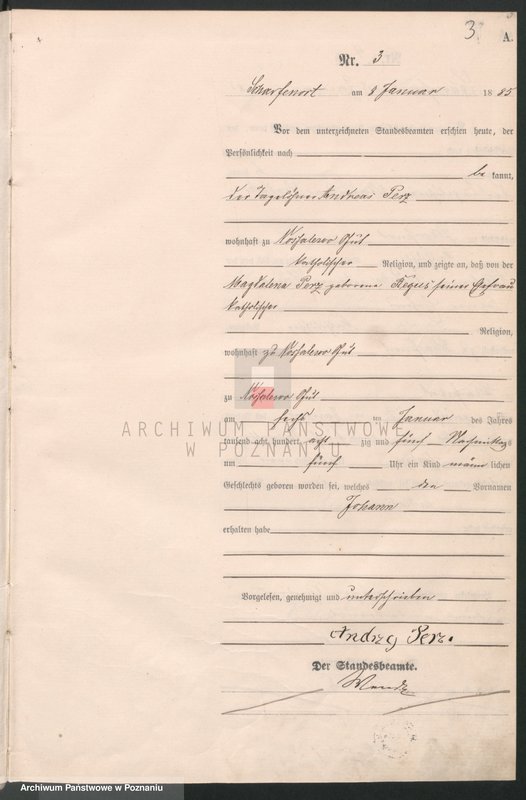 3
A.
Nr. 3
Scharfenort am 8 Januar 1885
Vor dem unterzeichneten Standesbeamten erschien heute, der
Persönlichkeit nach
be kannt,
der Tagelöhner Andreas Perz
wohnhaft zu Gut
katholischer Religion, und zeigte an, daß von der
Magdalena Perz geborene seiner Ehefrau
katholischer
Religion,
wohnhaft zu Gut
zu Gut
am sechs ten Januar des Jahres
tausend acht hundert acht zig und fünf Nachmittags
um fünf Uhr ein Kind männ lichen
Geschlechts geboren worden sei, welches den Vornamen
Johann
erhalten habe
Vorgelesen, genehmigt und unterschrieben
Andrzej Perz.
Der Standesbeamte.
ARCHIWUM PAŃSTWOWE
W POZNANIU
Archiwum Państwowe w Poznaniu